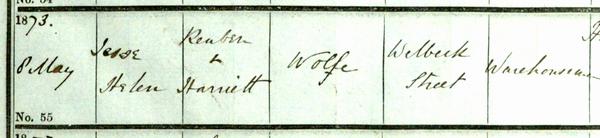 1873.
8 May
No. 55
Jesse
Helen
Reuben
+
Harriett
Wolfe
Welbeck
Street
Warehouseman